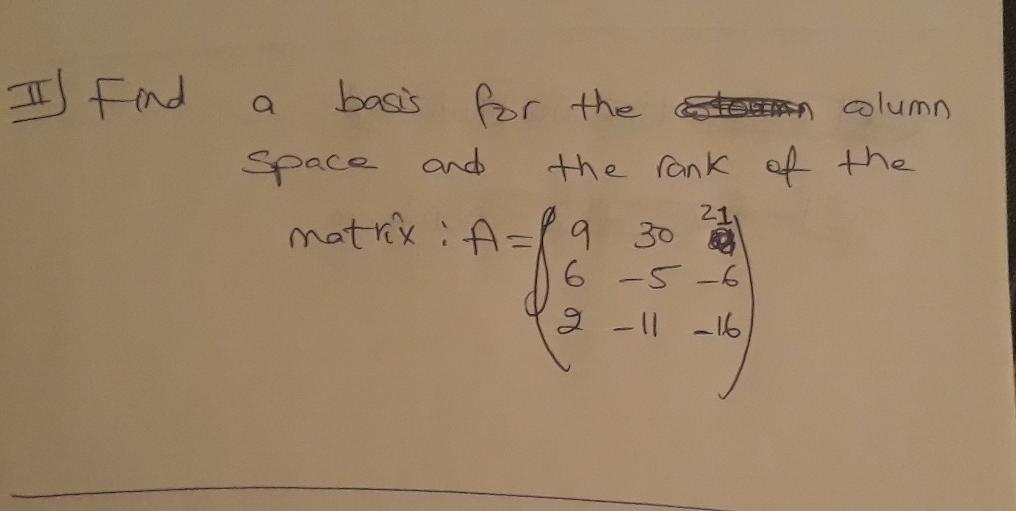 II) Find a basis for the column
space and the rank of the
matrix : A = ( 9 30 21
6 -5 -6
2 -11 -16 )